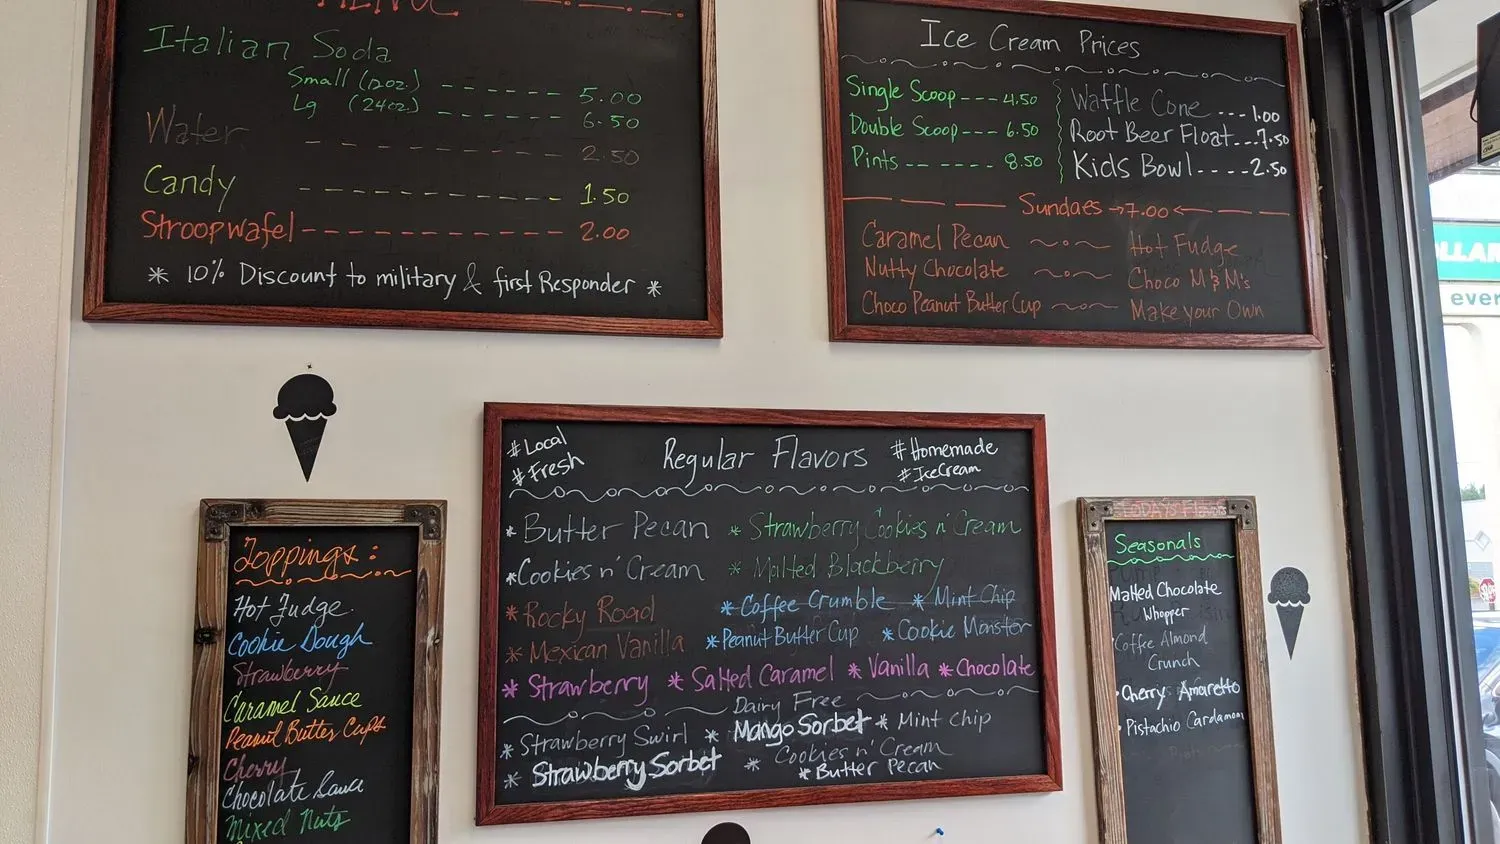 MENU
Italian Soda
Small (12oz.) ------ 5.00
Lg (24oz.) ------ 6.50
Water - ------- 2.50
Candy ----------- 1.50
Stroopwafel ----------- 2.00
* 10% Discount to military & first Responder *
Ice Cream Prices
Single Scoop --- 4.50
Double Scoop --- 6.50
Pints ------- 8.50
Waffle Cone --- 1.00
Root Beer Float --- 7.50
Kids Bowl ---- 2.50
Sundaes → 7.00 ←
Caramel Pecan Hot Fudge
Nutty Chocolate Choco M & M's
Choco Peanut Butter Cup Make your Own
#Local
#Fresh
Regular Flavors
#Homemade
#IceCream
* Butter Pecan * Strawberry Cookies n' Cream
* Cookies n' Cream * Malted Blackberry
* Rocky Road * Coffee Crumble * Mint Chip
* Mexican Vanilla * Peanut Butter Cup * Cookie Monster
* Strawberry * Salted Caramel * Vanilla * Chocolate
Dairy Free
* Strawberry Swirl * Mango Sorbet * Mint Chip
* Strawberry Sorbet * Cookies n' Cream
* Butter Pecan
Toppings:
Hot Fudge
Cookie Dough
Strawberry
Caramel Sauce
Peanut Butter Cups
Cherry
Chocolate Sauce
Mixed Nuts
TODAYS Flavors
Seasonals
Malted Chocolate
Whopper
Coffee Almond
Crunch
Cherry Amaretto
Pistachio Cardamom
ever